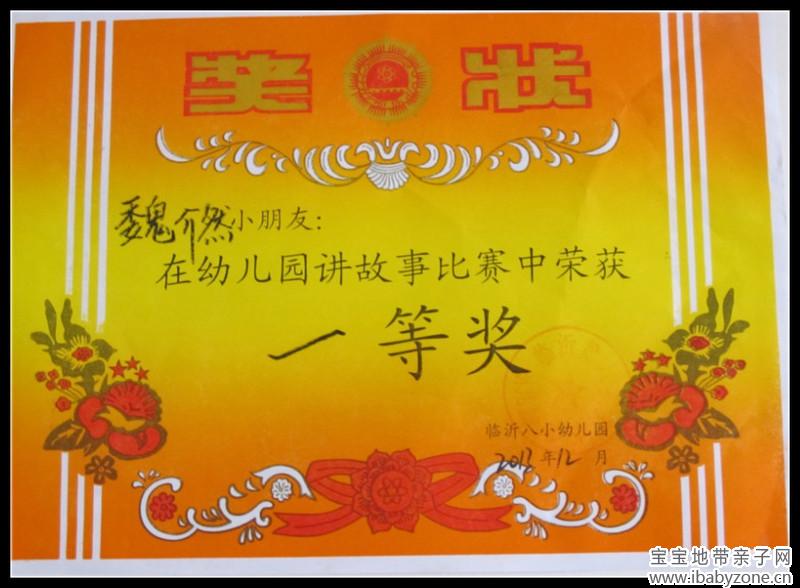 奖 状
魏介然小朋友：
在幼儿园讲故事比赛中荣获
一等奖
临沂八小幼儿园
年12月
宝宝地带亲子网
www.ibabyzone.cn